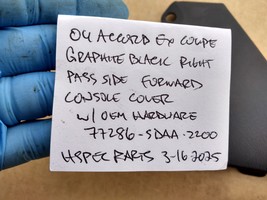 04 ACCORD EX COUPE
GRAPHITE BLACK RIGHT
PASS SIDE FORWARD
CONSOLE COVER
W/ OEM HARDWARE
77286-SDAA-2200
HSPEC PARTS 3-16-2025